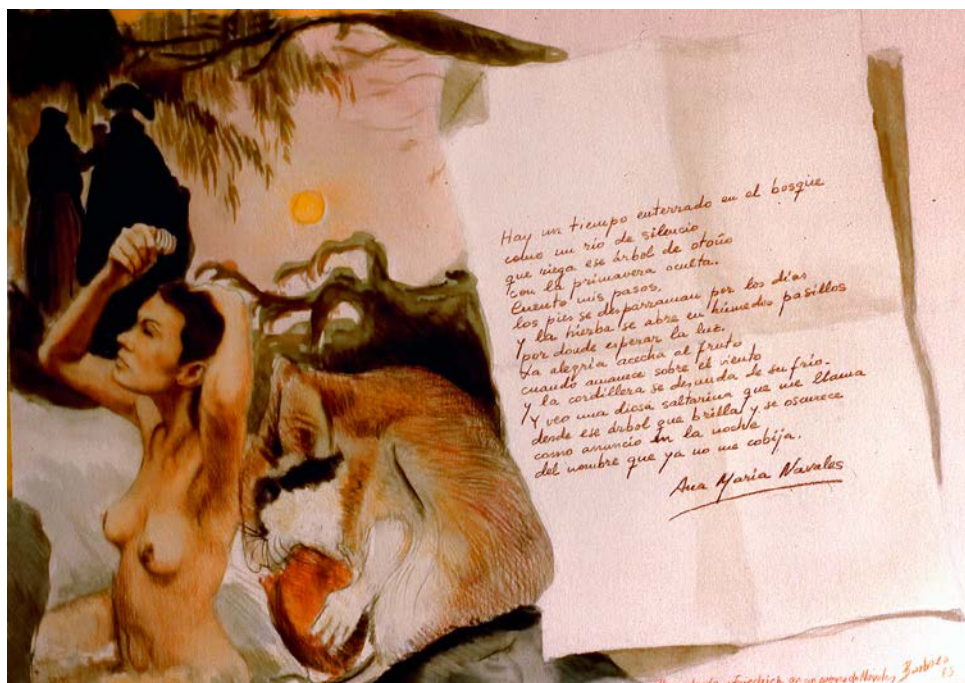 Hay un tiempo enterrado en el bosque
como un río de silencio
que riega ese árbol de otoño
con la primavera oculta.
Cuento mis pasos,
los pies se desparraman por los días
Y la hierba se abre en húmedos pasillos
por donde esperar la luz.
La alegría acecha al fruto
cuando amanece sobre el viento
Y la cordillera se desnuda de su frío.
Y veo una diosa saltarina que me llama
desde ese árbol que brilla y se oscurece
como anuncio en la noche
del nombre que ya no me cobija.
Ana María Navales
Friedrich en un poema de Navales